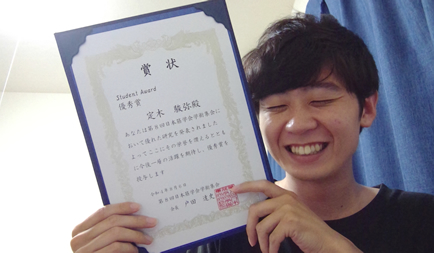 賞状
Student Award
優秀賞
定木 駿弥殿
あなたは第 回日本薬学会学術集会に
おいて優れた研究を発表されました
よってここにその栄誉を讃えるととも
に今後一層の活躍を期待し、優秀賞を
授与します
第 回日本薬学会学術集会
会長 戸田 達史